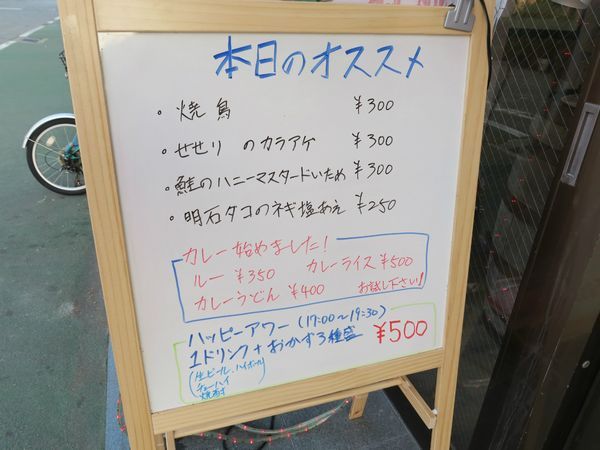 本日のオススメ
・焼鳥 ¥300
・せせりのカラアゲ ¥300
・鮭のハニーマスタードいため ¥300
・明石タコのネギ塩あえ ¥250
カレー始めました!
ルー ¥350 カレーライス ¥500
カレーうどん ¥400 お試し下さい!
ハッピーアワー(17:00~19:30)
1ドリンク+おかず3種盛 ¥500
(生ビール、ハイボール
チューハイ
焼酎)